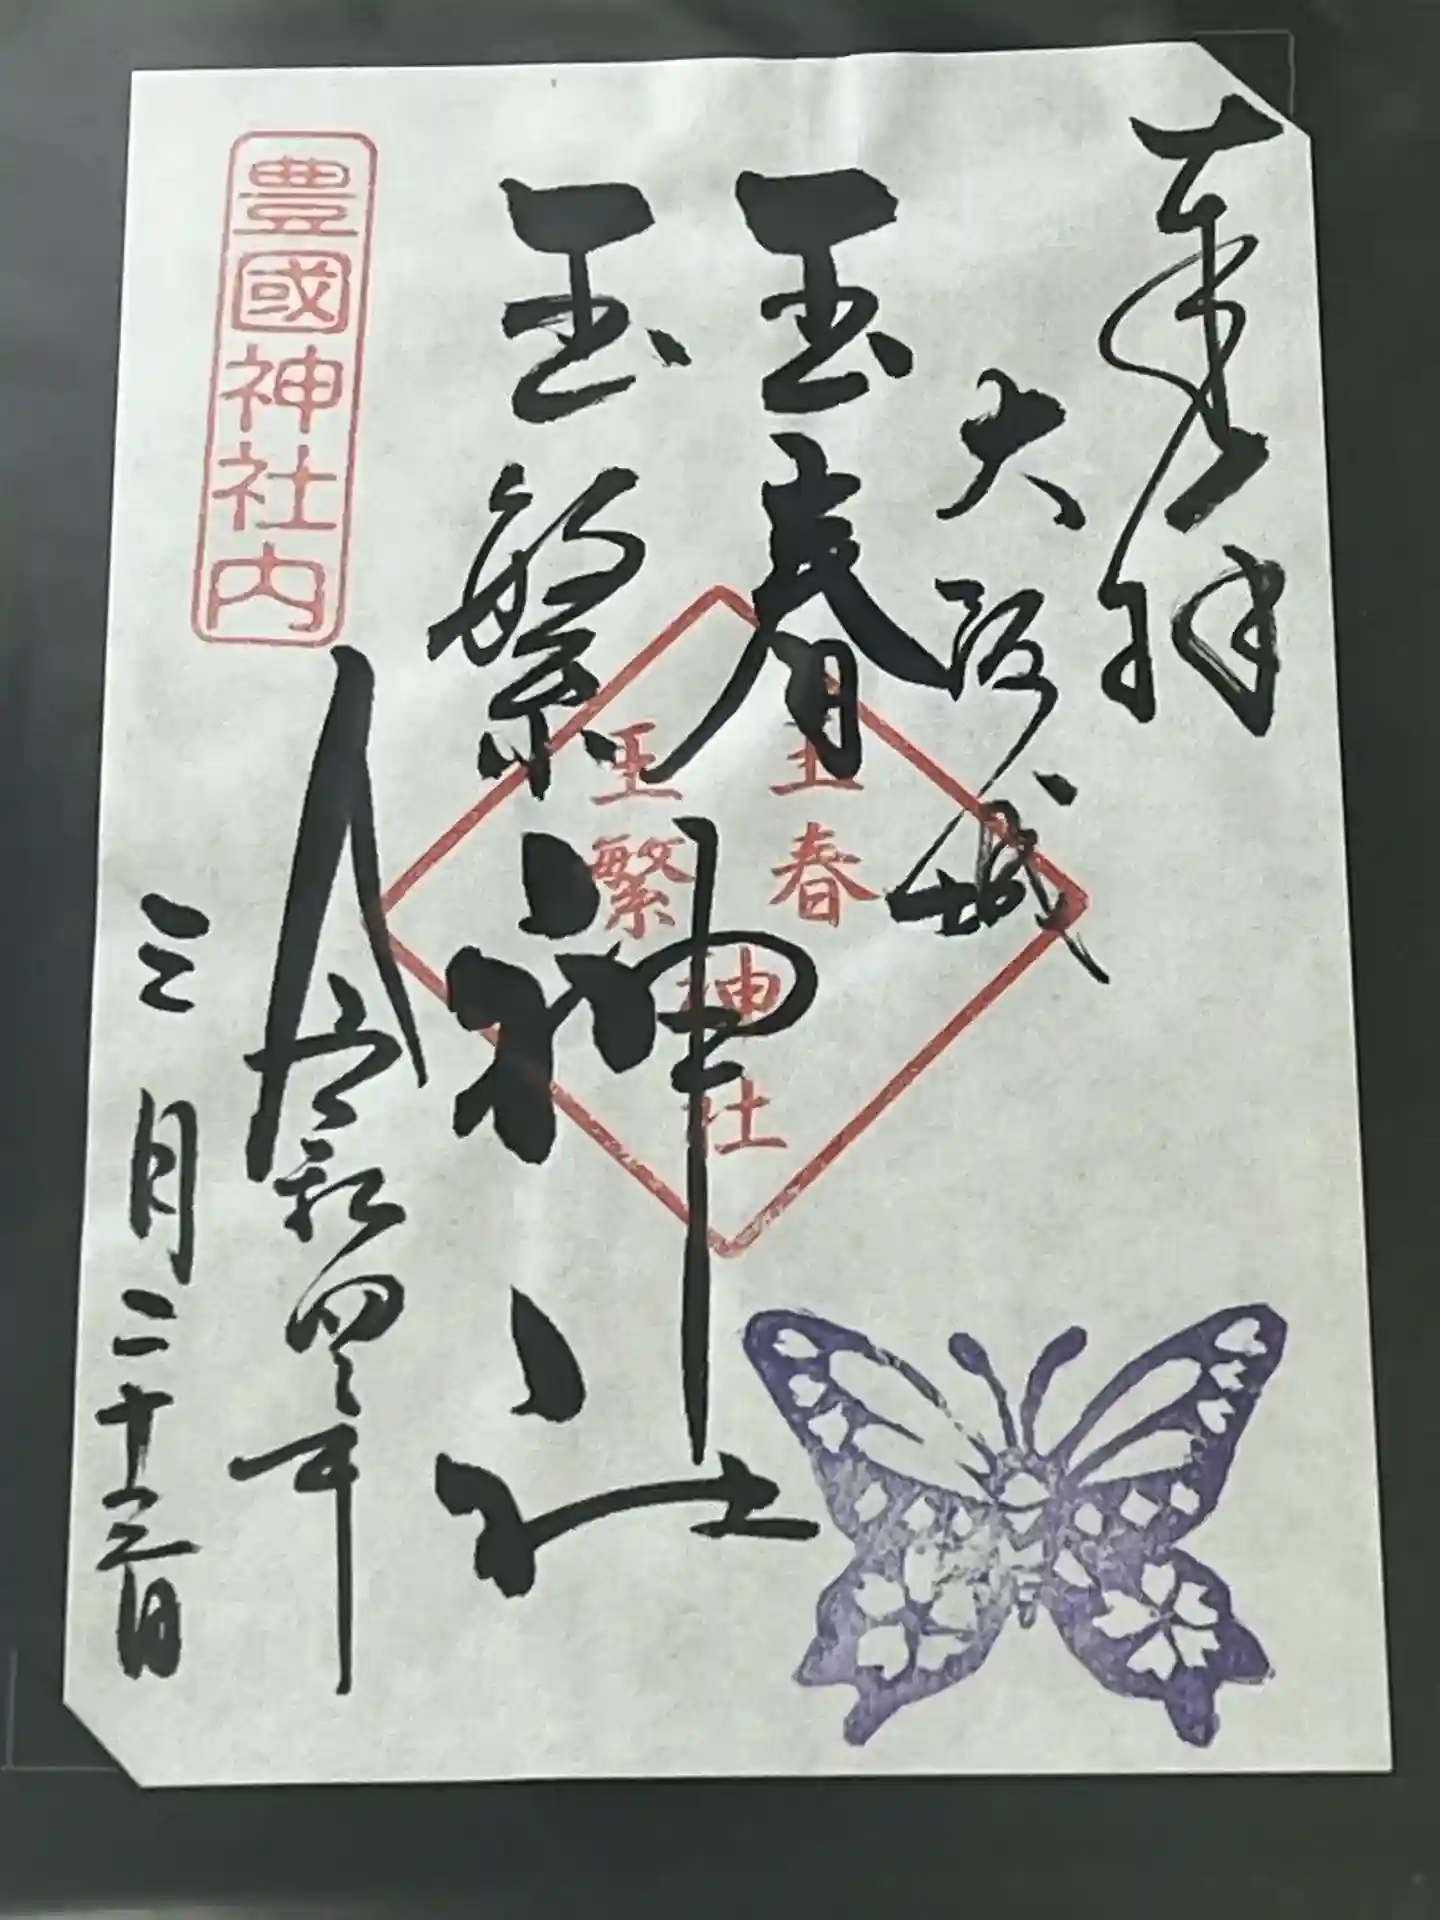 奉拝
大阪城
玉春
玉繁
神社
令和四年
三月二十三日
豊國神社内
玉春
玉繁
神社